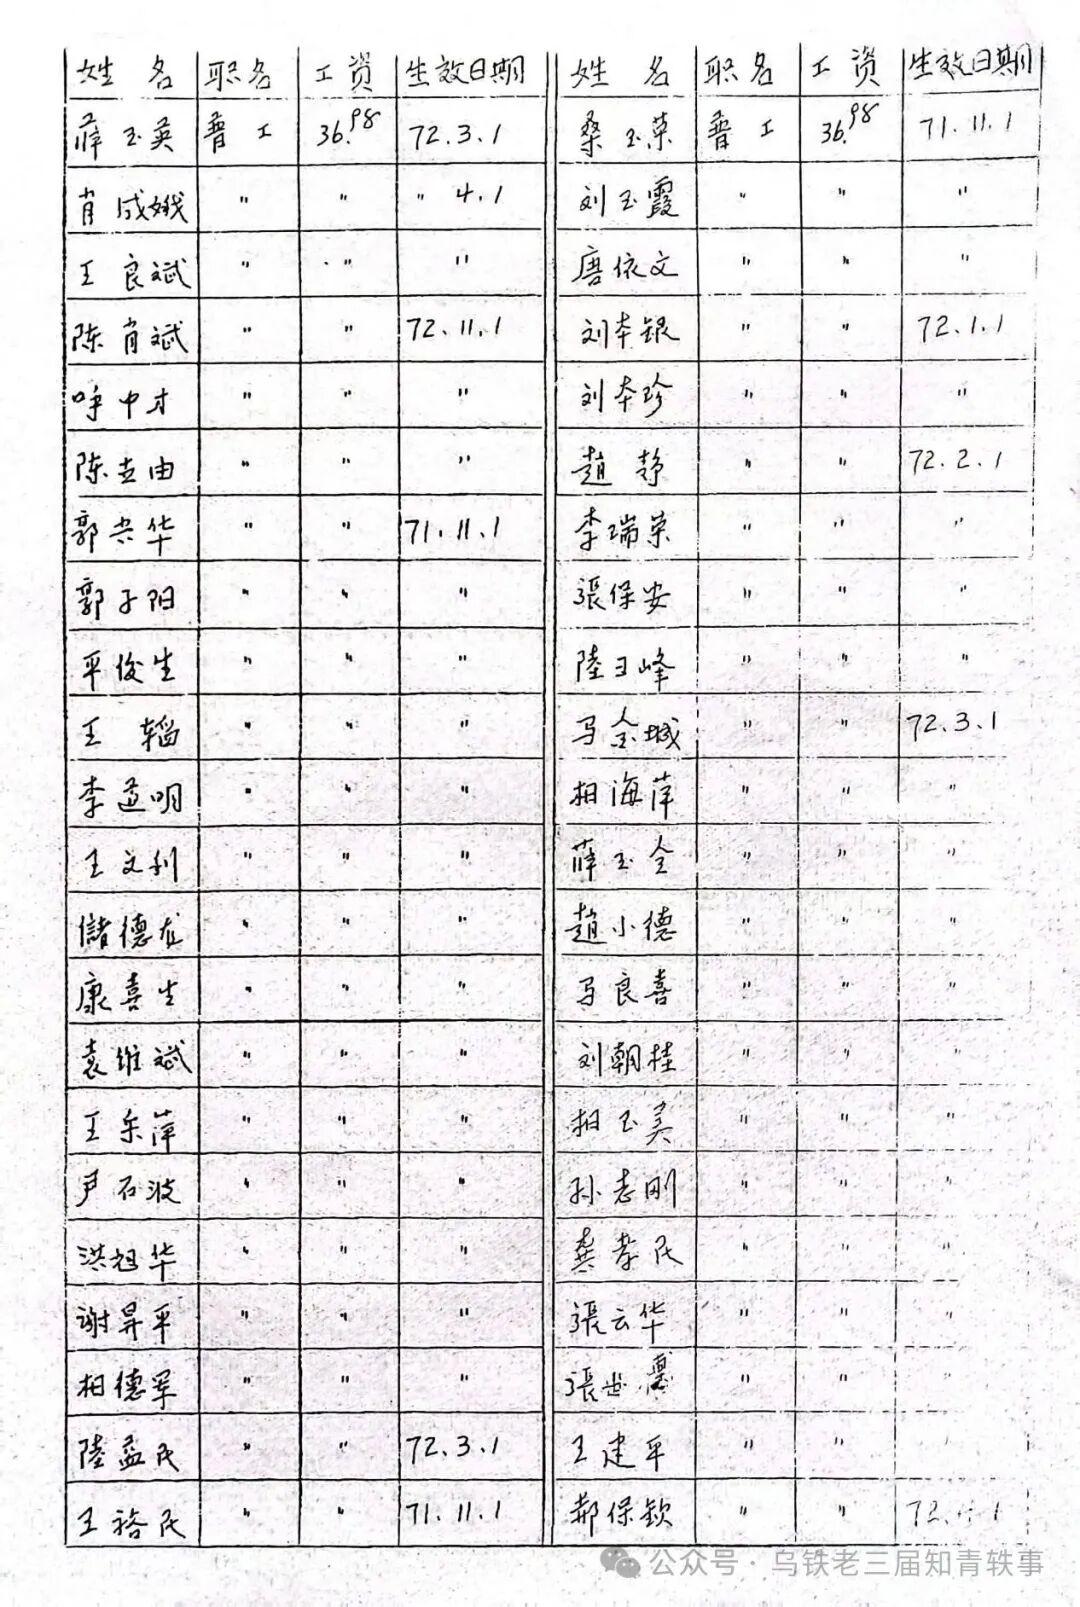 姓名 职名 工资 生效日期 姓名 职名 工资 生效日期
薛玉英 普工 36.98 72.3.1 桑玉荣 普工 36.98 71.11.1
肖成娥 " " " 4.1 刘玉霞 " " "
王良斌 " " " 唐依文 " " "
陈肖斌 " " 72.11.1 刘本银 " " 72.1.1
呼中才 " " " 刘本珍 " " "
陈志由 " " " 趙静 " " 72.2.1
郭共华 " " 71.11.1 李瑞荣 " " "
郭子阳 " " " 張保安 " " "
平俊生 " " " 陸日峰 " " "
王韬 " " " 马金城 " " 72.3.1
李道明 " " " 柏海萍 " " "
王文利 " " " 薛玉全 " " "
儲德龙 " " " 趙小德 " " "
康喜生 " " " 马良喜 " " "
袁维斌 " " " 刘朝桂 " " "
王乐萍 " " " 柏玉美 " " "
尹石波 " " " 孙志刚 " " "
洪旭华 " " " 龚孝民 " " "
谢昇平 " " " 張云华 " " "
柏德军 " " " 張世 " " "
陸益民 " " 72.3.1 王建平 " " "
王裕民 " " 71.11.1 郝保钦 " " 72. .1
公众号·乌铁老三届知青轶事